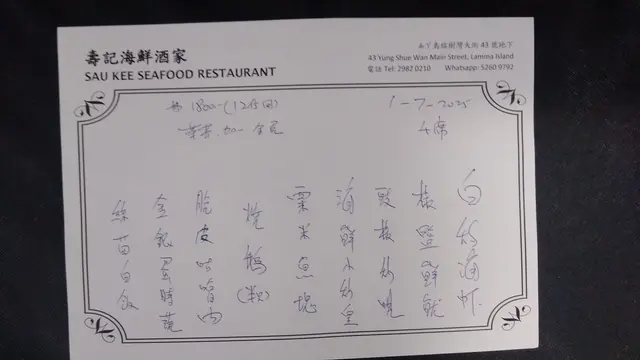 壽記海鮮酒家
SAU KEE SEAFOOD RESTAURANT
南丫島榕樹灣大街 43 號地下
43 Yung Shue Wan Main Street, Lamma Island
電話 Tel: 2982 0210 Whatsapp: 5260 9792
1800-(12位用)
1-7-2025
茶芥.加一 全免
4席
白灼海虾
椒鹽鮮魷
豉椒炒蜆
海鮮小炒皇
粟米魚塊
燒鵝
脆皮咕嚕肉
金銀蛋時蔬
絲苗白飯